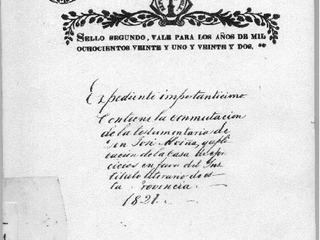 SELLO SEGUNDO, VALE PARA LOS AÑOS DE MIL
OCHOCIENTOS VEINTE Y UNO Y VEINTE Y DOS.
Expediente importantisimo
Contiene la conmutacion
de la testamentaria de
Don José
cacion de la Casa de
cicios en favor del Yns
tituto literario de es
ta Provincia
1821.